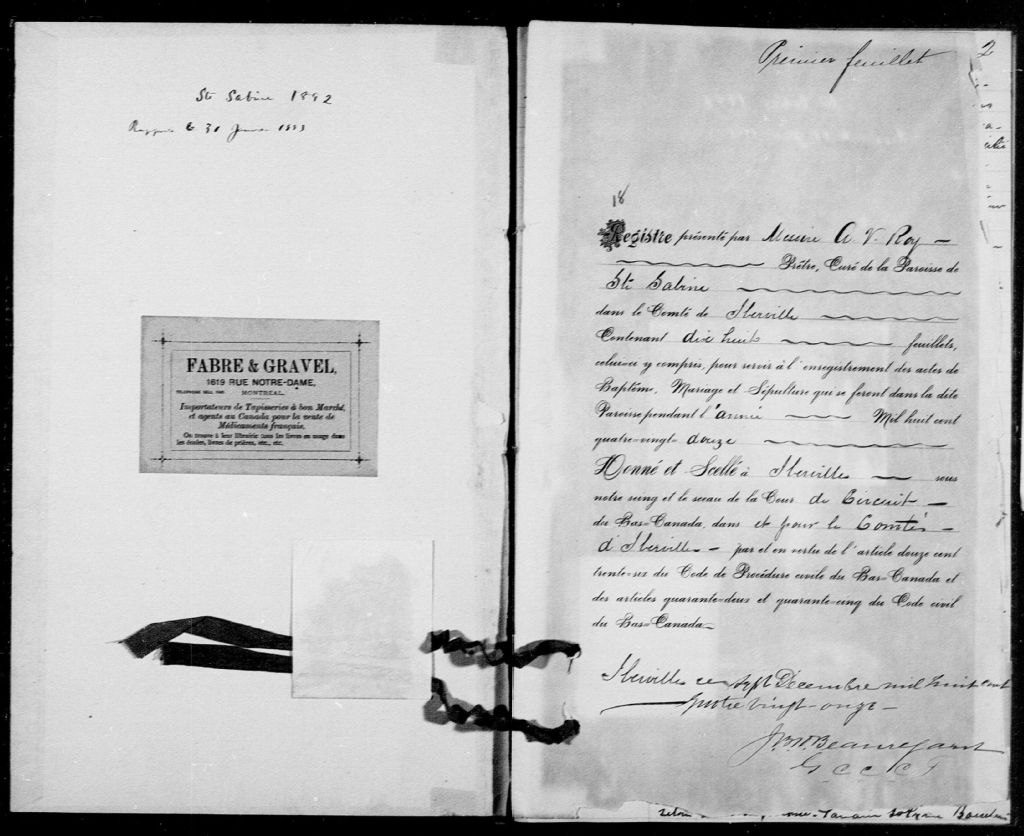 Ste Sabine 1892
Rapporté le 31 Janvier 1893
FABRE & GRAVEL,
1619 RUE NOTRE-DAME,
TELEPHONE BELL
MONTREAL.
Importateurs de Tapisseries à bon Marché,
et agents au Canada pour la vente de
Médicaments français.
On trouve à leur librairie tous les livres en usage dans
les écoles, livres de prières, etc., etc.
2
Premier feuillet
18
Registre présenté par Messire A. V. Roy
Prêtre, Curé de la Paroisse de
Ste Sabine
dans le Comté de Iberville
Contenant dix huit feuillets,
celui-ci y compris, pour servir à l'enregistrement des actes de
Baptême, Mariage et Sépulture qui se feront dans la dite
Paroisse pendant l'année Mil huit cent
quatre-vingt douze
Donné et Scellé à Iberville sous
notre seing et le sceau de la Cour de Circuit
du Bas-Canada, dans et pour le Comté
d'Iberville par et en vertu de l'article douze cent
trente-six du Code de Procédure civile du Bas-Canada et
des articles quarante-deux et quarante-cinq du Code civil
du Bas-Canada
Iberville ce sept Décembre mil huit cent
quatre vingt-onze
Beauregard
G C C C I